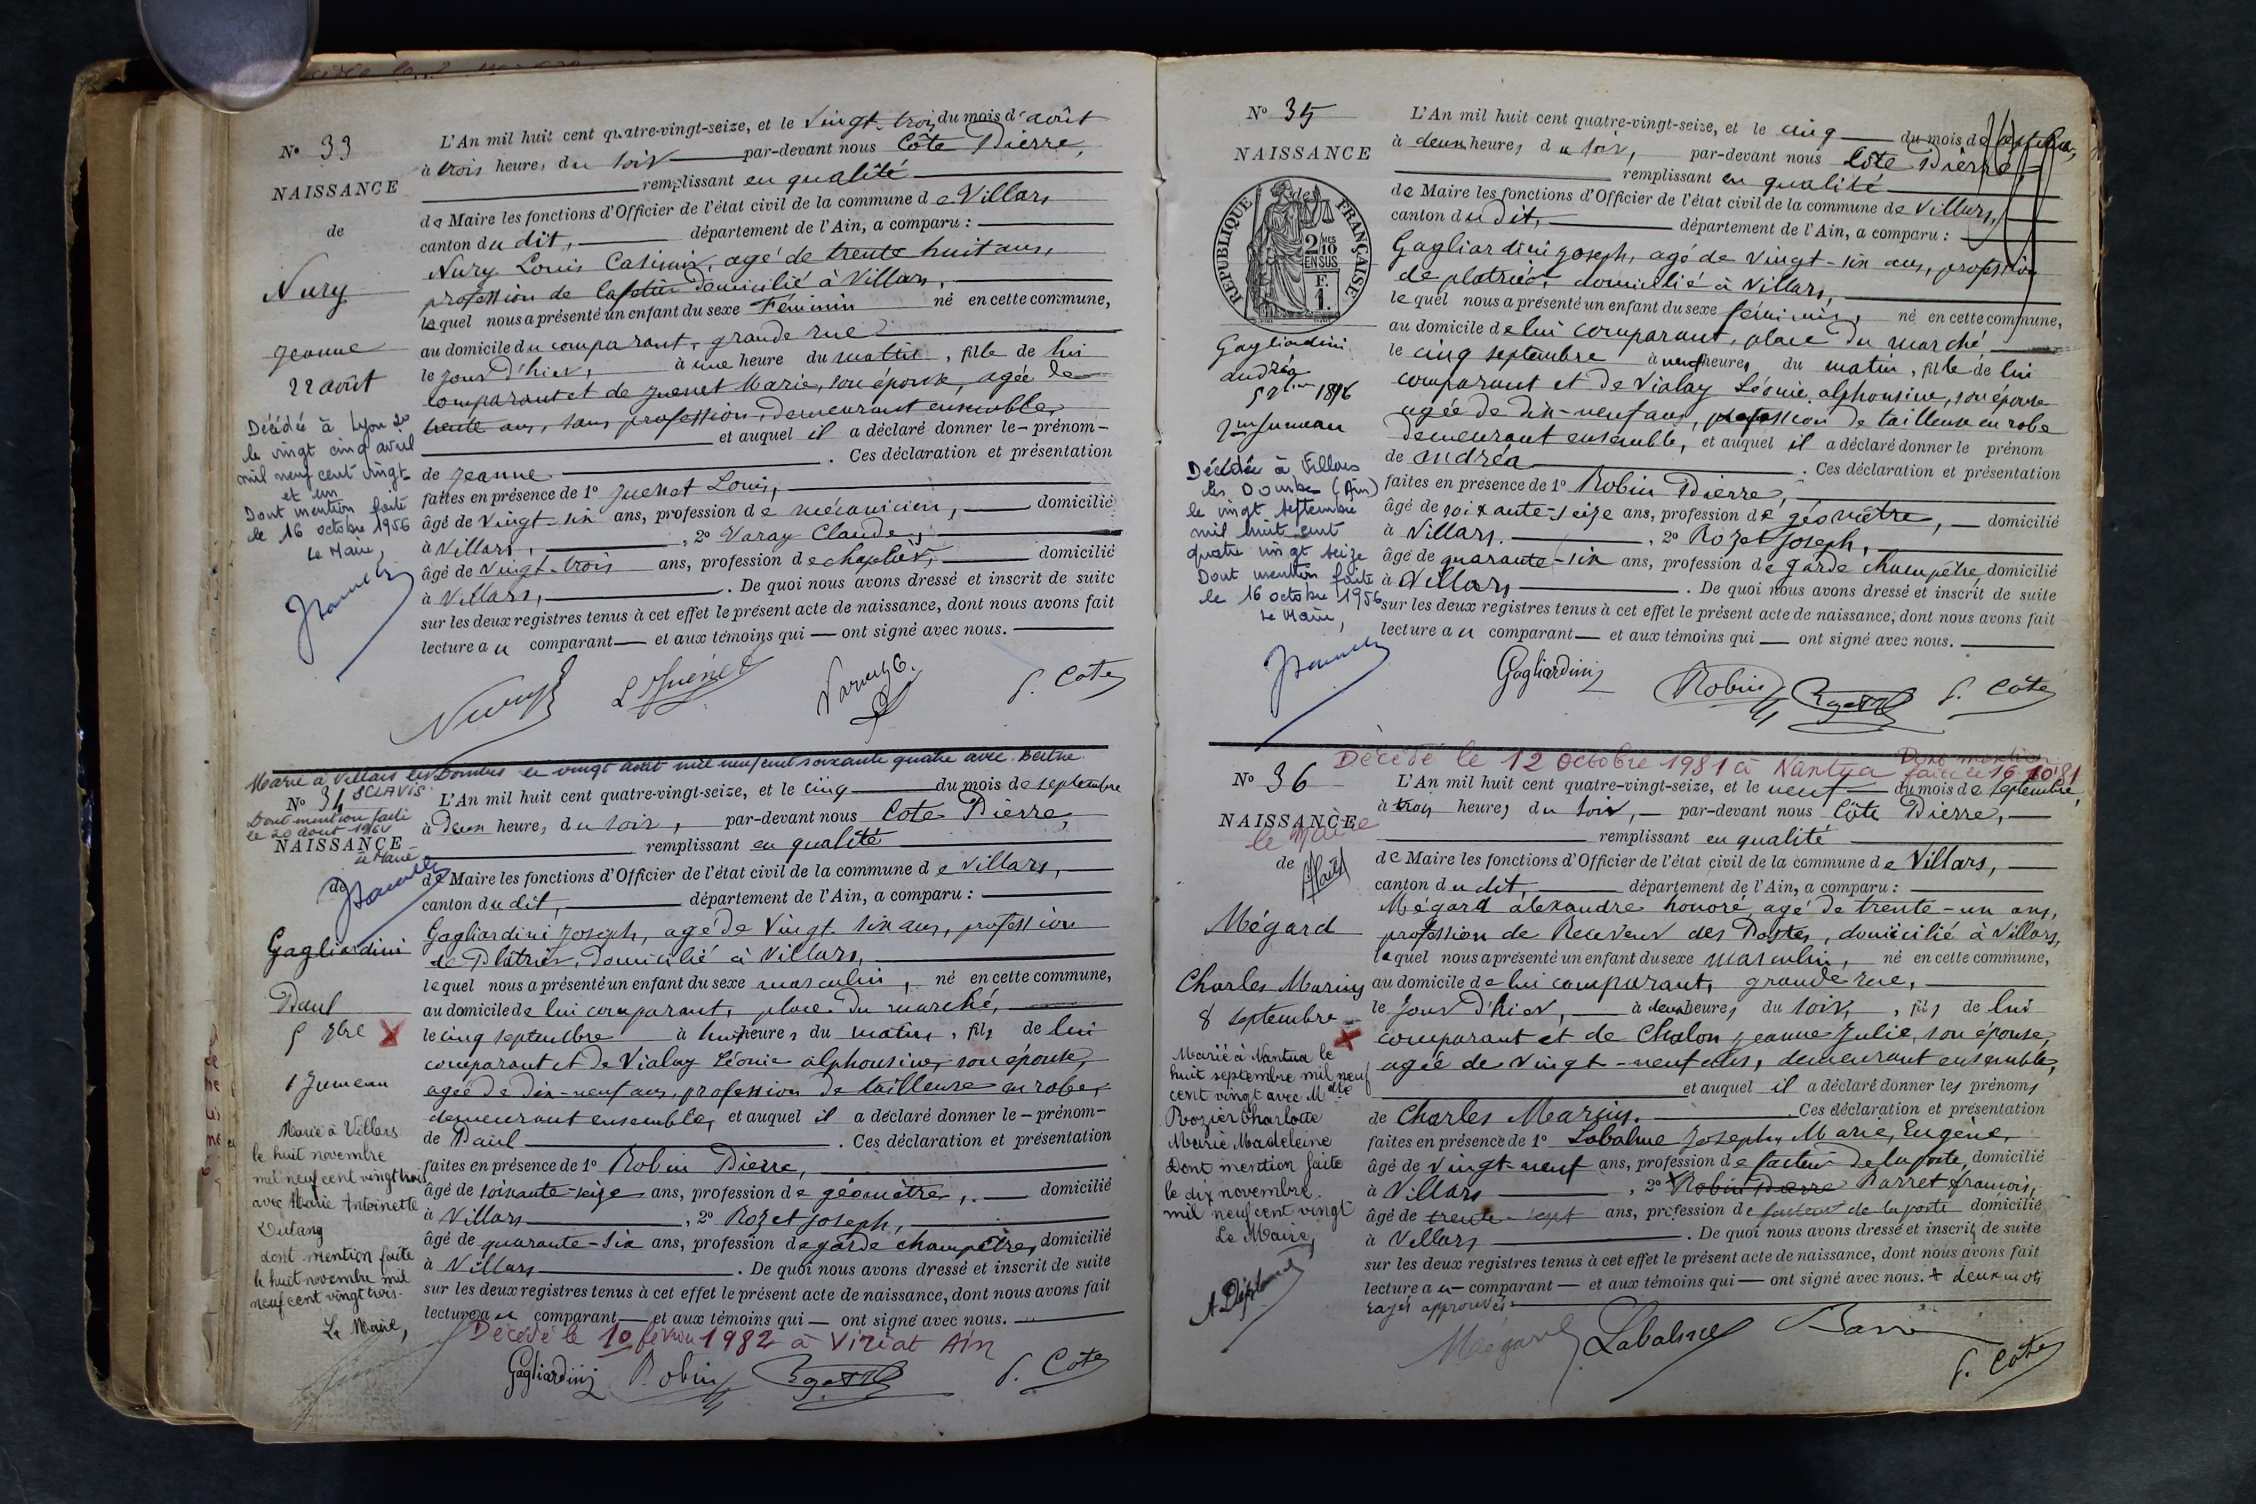 N° 33
NAISSANCE
de
Nury
Jeanne
22 août
Décédée à Lyon 2e
le vingt cinq avril
mil neuf cent vingt
et un
Dont mention faite
le 16 octobre 1956
Le Maire,
L'An mil huit cent quatre-vingt-seize, et le vingt-trois du mois d'août
à trois heures du soir par-devant nous Côte Pierre,
remplissant en qualité
de Maire les fonctions d'Officier de l'état civil de la commune de Villars
canton du dit, département de l'Ain, a comparu :
Nury Louis Casimir, agé de trente huit ans,
profession de domicilié à Villars,
lequel nous a présenté un enfant du sexe Féminin né en cette commune,
au domicile du comparant, grande rue
le jour d'hier, à une heure du matin, fille de lui
comparant et de Juenet Marie, son épouse, agée de
trente ans, sans profession, demeurant ensemble,
et auquel il a déclaré donner le - prénom -
de Jeanne . Ces déclaration et présentation
faites en présence de 1° Juenet Louis,
âgé de vingt-six ans, profession de mécanicien, domicilié
à Villars, , 2° Varay Claude,
âgé de vingt-trois ans, profession de domicilié
à Villars, . De quoi nous avons dressé et inscrit de suite
sur les deux registres tenus à cet effet le présent acte de naissance, dont nous avons fait
lecture au comparant et aux témoins qui ont signé avec nous.
Nury L Juenet Varay C. P. Cote
Marié à Villars les Dombes le vingt août mil neuf cent soixante quatre avec Berthe
SCLAVIS
N° 34
Dont mention faite
le 20 août 1964
NAISSANCE
Le Maire
de
Gagliardini
Paul
5 7bre
1 Jumeau
Marié à Villars
le huit novembre
mil neuf cent vingt trois
avec Marie Antoinette
Dulang
dont mention faite
le huit novembre mil
neuf cent vingt trois.
Le Maire,
L'An mil huit cent quatre-vingt-seize, et le cinq du mois de septembre
à deux heures du soir, par-devant nous Cote Pierre,
remplissant en qualité
de Maire les fonctions d'Officier de l'état civil de la commune de Villars,
canton du dit, département de l'Ain, a comparu :
Gagliardini Joseph, agé de vingt-six ans, profession
de Plâtrier, domicilié à Villars,
lequel nous a présenté un enfant du sexe masculin, né en cette commune,
au domicile de lui comparant, place du marché,
le cinq septembre à huit heures du matin, fils de lui
comparant et de Vialay Léonie alphonsine, son épouse,
agée de dix-neuf ans, profession de tailleuse en robe,
demeurant ensemble, et auquel il a déclaré donner le - prénom -
de Paul . Ces déclaration et présentation
faites en présence de 1° Robin Pierre,
âgé de soixante-seize ans, profession de géomètre, domicilié
à Villars , 2° Rozet Joseph,
âgé de quarante-six ans, profession de garde champêtre, domicilié
à Villars . De quoi nous avons dressé et inscrit de suite
sur les deux registres tenus à cet effet le présent acte de naissance, dont nous avons fait
lecture au comparant et aux témoins qui ont signé avec nous.
Décédé le 10 février 1982 à Viriat Ain
Gagliardini Robin Rozet P. Cote
N° 35
NAISSANCE
de
RÉPUBLIQUE FRANÇAISE
2/10 MES
EN SUS
F.
1
Gagliardini
andréa
5 7bre 1896
2me Jumeau
Décédée à Villars
les Dombes (Ain)
le vingt septembre
mil huit cent
quatre vingt seize
Dont mention faite
le 16 octobre 1956
Le Maire,
L'An mil huit cent quatre-vingt-seize, et le cinq du mois de septembre,
à deux heures du soir, par-devant nous Côte Pierre,
remplissant en qualité
de Maire les fonctions d'Officier de l'état civil de la commune de Villars,
canton du dit, département de l'Ain, a comparu :
Gagliardini Joseph, agé de vingt-six ans, profession
de platrier, domicilié à Villars,
lequel nous a présenté un enfant du sexe féminin, né en cette commune,
au domicile de lui comparant, place du marché
le cinq septembre à neuf heures du matin, fille de lui
comparant et de Vialay Léonie alphonsine, son épouse
agée de dix-neuf ans, profession de tailleuse en robe
demeurant ensemble, et auquel il a déclaré donner le prénom
de andréa . Ces déclaration et présentation
faites en présence de 1° Robin Pierre,
âgé de soixante-seize ans, profession de géomètre, domicilié
à Villars. , 2° Rozet Joseph,
âgé de quarante-six ans, profession de garde champêtre, domicilié
à Villars . De quoi nous avons dressé et inscrit de suite
sur les deux registres tenus à cet effet le présent acte de naissance, dont nous avons fait
lecture au comparant et aux témoins qui ont signé avec nous.
Gagliardini Robin Rozet P. Côte
Décédé le 12 Octobre 1981 à Nantua Dont mention
faite le 16-10-81
N° 36
NAISSANCE
le Maire
de
Mégard
Charles Marius
8 septembre
Marié à Nantua le
huit septembre mil neuf
cent vingt avec Mdlle
Rozier Charlotte
Marie Madeleine
Dont mention faite
le dix novembre
mil neuf cent vingt
Le Maire,
L'An mil huit cent quatre-vingt-seize, et le neuf du mois de septembre,
à trois heures du soir, par-devant nous Côte Pierre,
remplissant en qualité
de Maire les fonctions d'Officier de l'état civil de la commune de Villars,
canton du dit, département de l'Ain, a comparu :
Mégard alexandre honoré, agé de trente-un ans,
profession de Receveur des Postes, domicilié à Villars,
lequel nous a présenté un enfant du sexe masculin, né en cette commune,
au domicile de lui comparant, grande rue,
le jour d'hier, à deux heures du soir, , fils de lui
comparant et de Chalon Jeanne Julie, son épouse,
agée de vingt-neuf ans, demeurant ensemble,
et auquel il a déclaré donner les prénoms
de Charles Marius. . Ces déclaration et présentation
faites en présence de 1° Labalme Joseph, Marie, Eugène,
âgé de vingt-neuf ans, profession de facteur de la poste, domicilié
à Villars , 2° Robin Pierre Barret françois,
âgé de trente-sept ans, profession de facteur de la poste domicilié
à Villars . De quoi nous avons dressé et inscrit de suite
sur les deux registres tenus à cet effet le présent acte de naissance, dont nous avons fait
lecture au comparant et aux témoins qui ont signé avec nous. + deux mots
rayés approuvés.
Mégard Labalme P. Côte